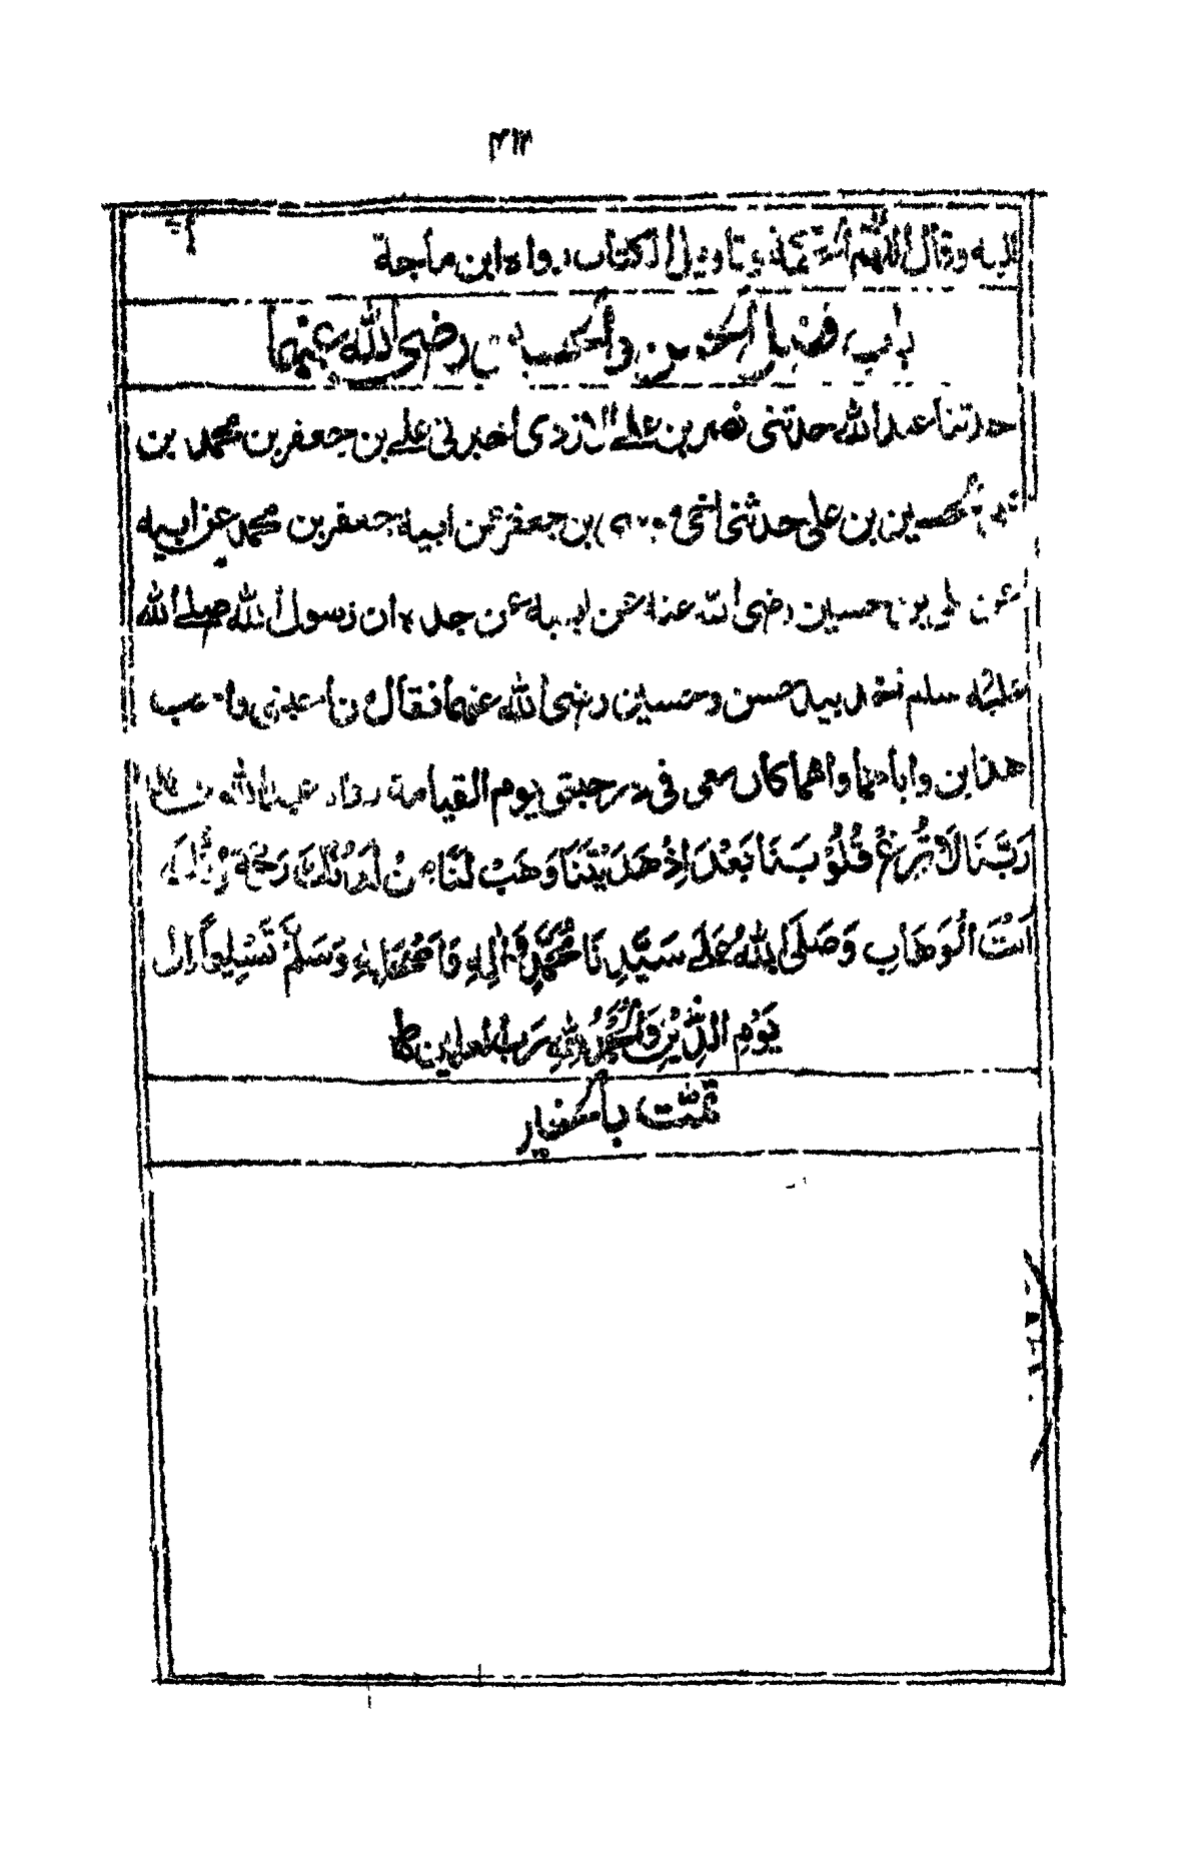 اليه وقال اللهم علمه الحكمة وتاويل الكتاب رواه ابن ماجة
باب فضل الحسن والحسين رضى الله عنهما
حدثنا عبد الله حدثنى نصر بن على الازدى اخبرنى على بن جعفر بن محمد بن
على بن الحسين بن على حدثنى اخى موسى بن جعفر عن ابيه جعفر بن محمد عن ابيه
عن على بن حسين رضى الله عنه عن ابيه عن جده ان رسول الله صلى الله
عليه سلم اخذ بيد حسن وحسين رضى الله عنهما فقال من احبنى واحب
هذين واباهما وامهما كان معى فى درجتى يوم القيامة رواه عبد الله بن
رَبَّنَا لَا تُزِغْ قُلُوْبَنَا بَعْدَ اِذْ هَدَيْتَنَا وَهَبْ لَنَا مِنْ لَدُنْكَ رَحْمَةً اِنَّكَ
اَنْتَ الْوَهَّابِ وَصَلَّى اللهُ عَلَى سَيِّدِنَا مُحَمَّدٍ وَّاٰلِهٖ وَاَصْحَابِهٖ وَسَلَّمَ تَسْلِيمًا اِلٰى
يَوْمِ الدِّيْنِ وَالْحَمْدُ لِلّٰهِ رَبِّ الْعٰلَمِيْنَ
تمّت بالخير